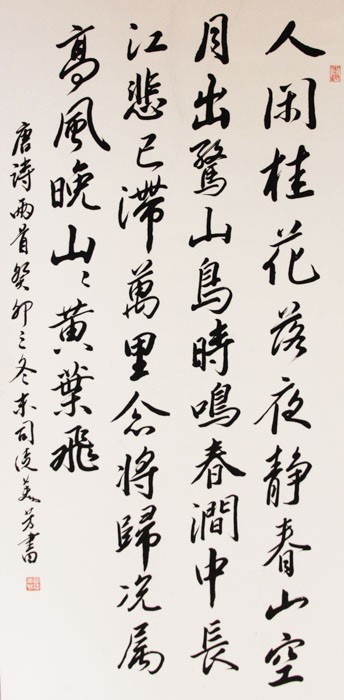 人闲桂花落夜静春山空
月出驚山鳥時鳴春澗中長
江悲已滯萬里念将歸况属
高風晚山々黄葉飛
唐詩兩首癸卯之冬末司徒美芳書